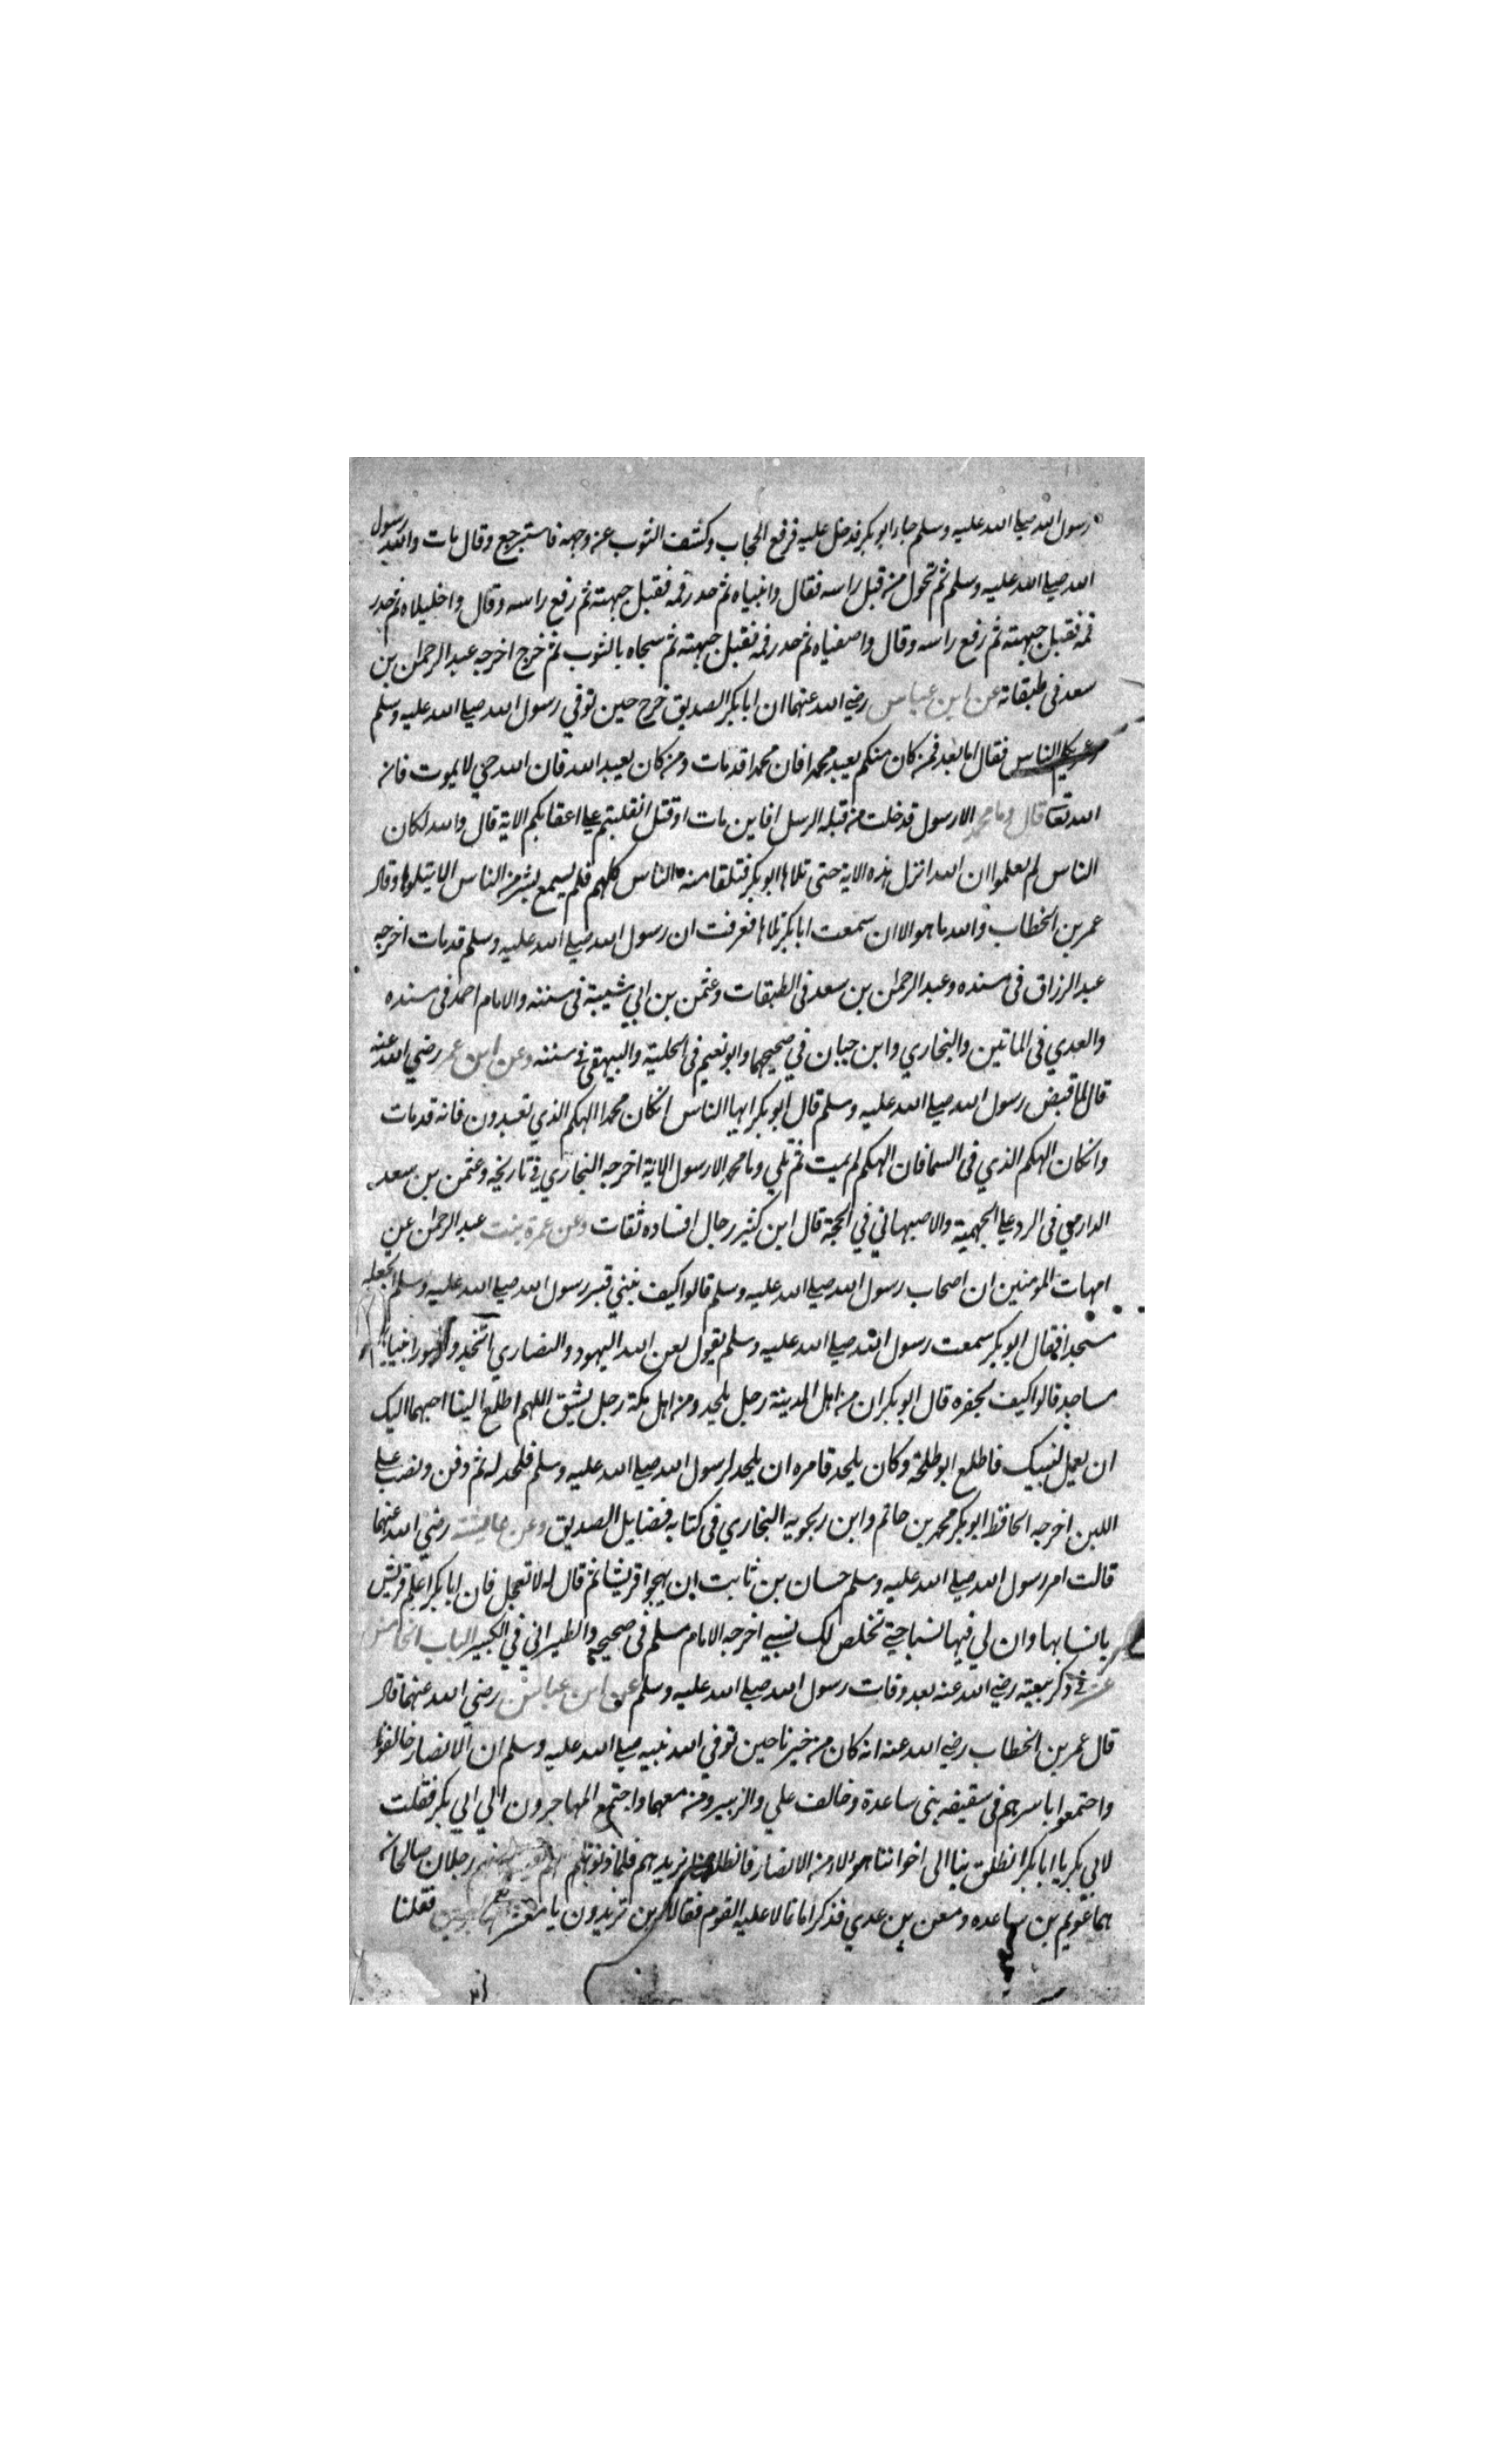 رسول الله صلى الله عليه وسلم جاء ابو بكر فدخل عليه فرفع الحجاب وكشف الثوب عن وجهه فاسترجع وقال مات والله رسول
الله صلى الله عليه وسلم ثم تحول من قبل راسه فقال وانبياه ثم حدر فمه فقبل جبهته ثم رفع راسه وقال واخليلاه ثم حدر
فمه فقبل جبهته ثم رفع راسه وقال واصفياه ثم حدر فمه فقبل جبهته ثم سجاه بالثوب ثم خرج اخرجه عبد الرحمن بن
سعد في طبقاته عن ابن عباس رضي الله عنهما ان ابا بكر الصديق خرج حين توفي رسول الله صلى الله عليه وسلم
الناس فقال اما بعد فمن كان منكم يعبد محمدا فان محمدا قد مات ومن كان يعبد الله فان الله حي لا يموت فانه
الله تعا قال وما محمد الا رسول قد خلت من قبله الرسل افاين مات او قتل انقلبتم على اعقابكم الاية قال والله لكان
الناس لم يعلموا ان الله انزل هذه الاية حتى تلاها ابو بكر فتلقا منه الناس كلهم فلم يسمع بشر من الناس الا يتلوها وقال
عمر بن الخطاب والله ما هو الا ان سمعت ابا بكر تلاها فعرفت ان رسول الله صلى الله عليه وسلم قد مات اخرجه
عبد الرزاق في مسنده وعبد الرحمن بن سعد في الطبقات وعثمن بن ابي شيبة في سننه والامام احمد في مسنده
والعدي في الماتين والبخاري وابن حبان في صحيحهما وابو نعيم في الحلية والبيهقي في سننه وعن ابن عمر رضي الله عنه
قال لما قبض رسول الله صلى الله عليه وسلم قال ابو بكر ايها الناس انكان محمدا الهكم الذي تعبدون فانه قد مات
وانكان الهكم الذي في السما فان الهكم لم يمت ثم تلي وما محمد الا رسول الاية اخرجه البخاري في تاريخه وعثمن بن سعد
الدارمي في الرد على الجهمية والاصبهاني في الحجة قال ابن كثير رجال اسناده ثقات وعن عمرة بنت عبد الرحمن عن
امهات المومنين ان اصحاب رسول الله صلى الله عليه وسلم قالوا كيف نبني قبر رسول الله صلى الله عليه وسلم انجعله
مسجدا فقال ابو بكر سمعت رسول الله صلى الله عليه وسلم يقول لعن الله اليهود والنصاري اتخذوا قبور انبيائهم
مساجد قالوا كيف نحفره قال ابو بكر ان من اهل المدينة رجل يلحد ومن اهل مكة رجل يشق اللهم اطلع الينا احبهما اليك
ان يعمل لنبيك فاطلع ابو طلحة وكان يلحد فامره ان يلحد لرسول الله صلى الله عليه وسلم فلحد له ثم دفن ونصب على
اللبن اخرجه الحافظ ابو بكر محمد بن حاتم وابن ربجويه البخاري في كتابه فضايل الصديق وعن عايشة رضي الله عنها
قالت امر رسول الله صلى الله عليه وسلم حسان بن ثابت ان يهجوا قريشا ثم قال له لا تعجل فان ابا بكر اعلم قريش
بانسابها وان لي فيها نسبا حتى تخلص لك نسبي اخرجه الامام مسلم في صحيحه والطبراني في الكبير الباب الخامس
عشر في ذكر بيعته رضي الله عنه بعد وفات رسول الله صلى الله عليه وسلم عن ابن عباس رضي الله عنهما قال
قال عمر بن الخطاب رضي الله عنه انه كان من خيرنا حين توفي الله نبيه صلى الله عليه وسلم ان الانصار خالفونا
واجتمعوا باسرهم في سقيفه بني ساعدة وخالف علي والزبير ومن معهما واجتمع المهاجرون الي ابي بكر فقلت
لابي بكر يا ابا بكر انطلق بنا الى اخواننا هولاء من الانصار فانطلقنا نريدهم فلما دنونا منهم رجلان صالحان
هما عويم بن ساعده ومعن بن عدي فذكرا ما تمالا عليه القوم فقالا اين تريدون يا معشر المهاجرين فقلنا